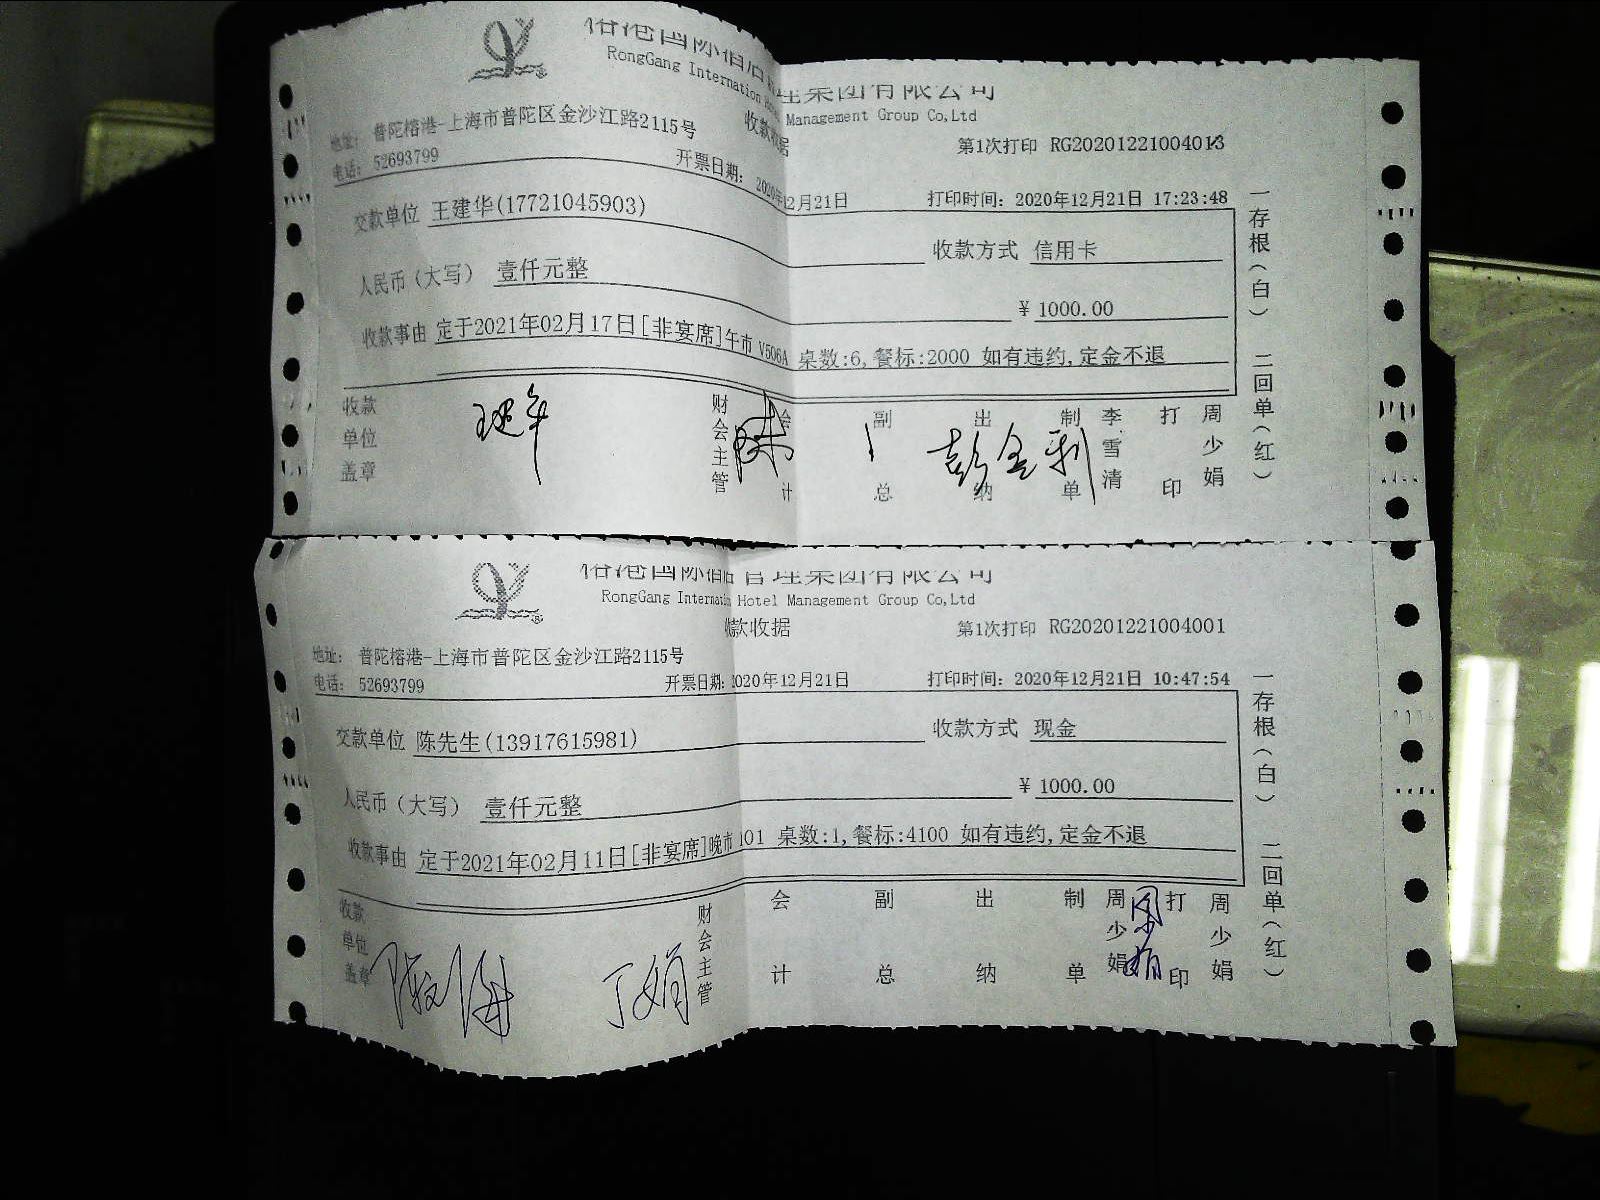 榕港国际酒店管理集团有限公司
RongGang International Hotel Management Group Co,Ltd
收款收据
第1次打印 RG20201221004013
地址: 普陀榕港-上海市普陀区金沙江路2115号
电话: 52693799 开票日期: 2020年12月21日 打印时间: 2020年12月21日 17:23:48
交款单位 王建华(17721045903) 收款方式 信用卡
人民币(大写) 壹仟元整 ¥ 1000.00
收款事由 定于2021年02月17日[非宴席]午市 V506A 桌数:6,餐标:2000 如有违约,定金不退
收款单位盖章 财会主管 会计 副总 出纳 彭金利 制单 李雪清 打印 周少娟
一存根(白) 二回单(红)
榕港国际酒店管理集团有限公司
RongGang Internatin Hotel Management Group Co,Ltd
收款收据
第1次打印 RG20201221004001
地址: 普陀榕港-上海市普陀区金沙江路2115号
电话: 52693799 开票日期: 2020年12月21日 打印时间: 2020年12月21日 10:47:54
交款单位 陈先生(13917615981) 收款方式 现金
人民币(大写) 壹仟元整 ¥ 1000.00
收款事由 定于2021年02月11日[非宴席]晚市 101 桌数:1,餐标:4100 如有违约,定金不退
收款单位盖章 丁娟 财会主管 会计 副总 出纳 制单 周少娟 打印 周少娟
一存根(白) 二回单(红)